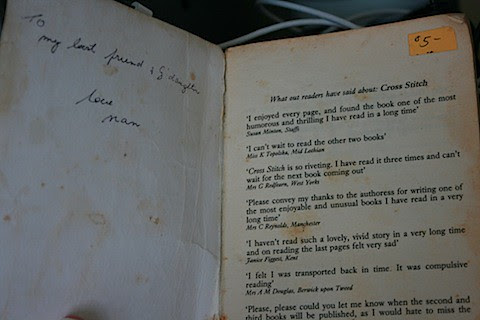 TO
my last friend & G'daughter
love
nan
$5-
What our readers have said about: Cross Stitch
'I enjoyed every page, and found the book one of the most
humorous and thrilling I have read in a long time'
Susan Minton, Staffs
'I can't wait to read the other two books'
Miss K Topolska, Mid Lothian
'Cross Stitch is so riveting. I have read it three times and can't
wait for the next book coming out'
Mrs G Redfearn, West Yorks
'Please convey my thanks to the authoress for writing one of
the most enjoyable and unusual books I have read in a very
long time'
Mrs C Reynolds, Manchester
'I haven't read such a lovely, vivid story in a very long time
and on reading the last pages felt very sad'
Janice Figgest, Kent
'I felt I was transported back in time. It was compulsive
reading'
Mrs A M Douglas, Berwick upon Tweed
'Please, please could you let me know when the second and
third books will be published, as I would hate to miss the